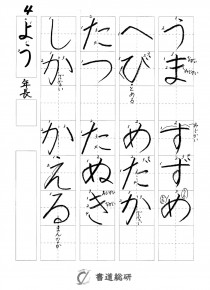 うま すずめ
へび めだか
とめる
たつ たぬき
しか かえる
まんなか
4 よう 年長
書道総研